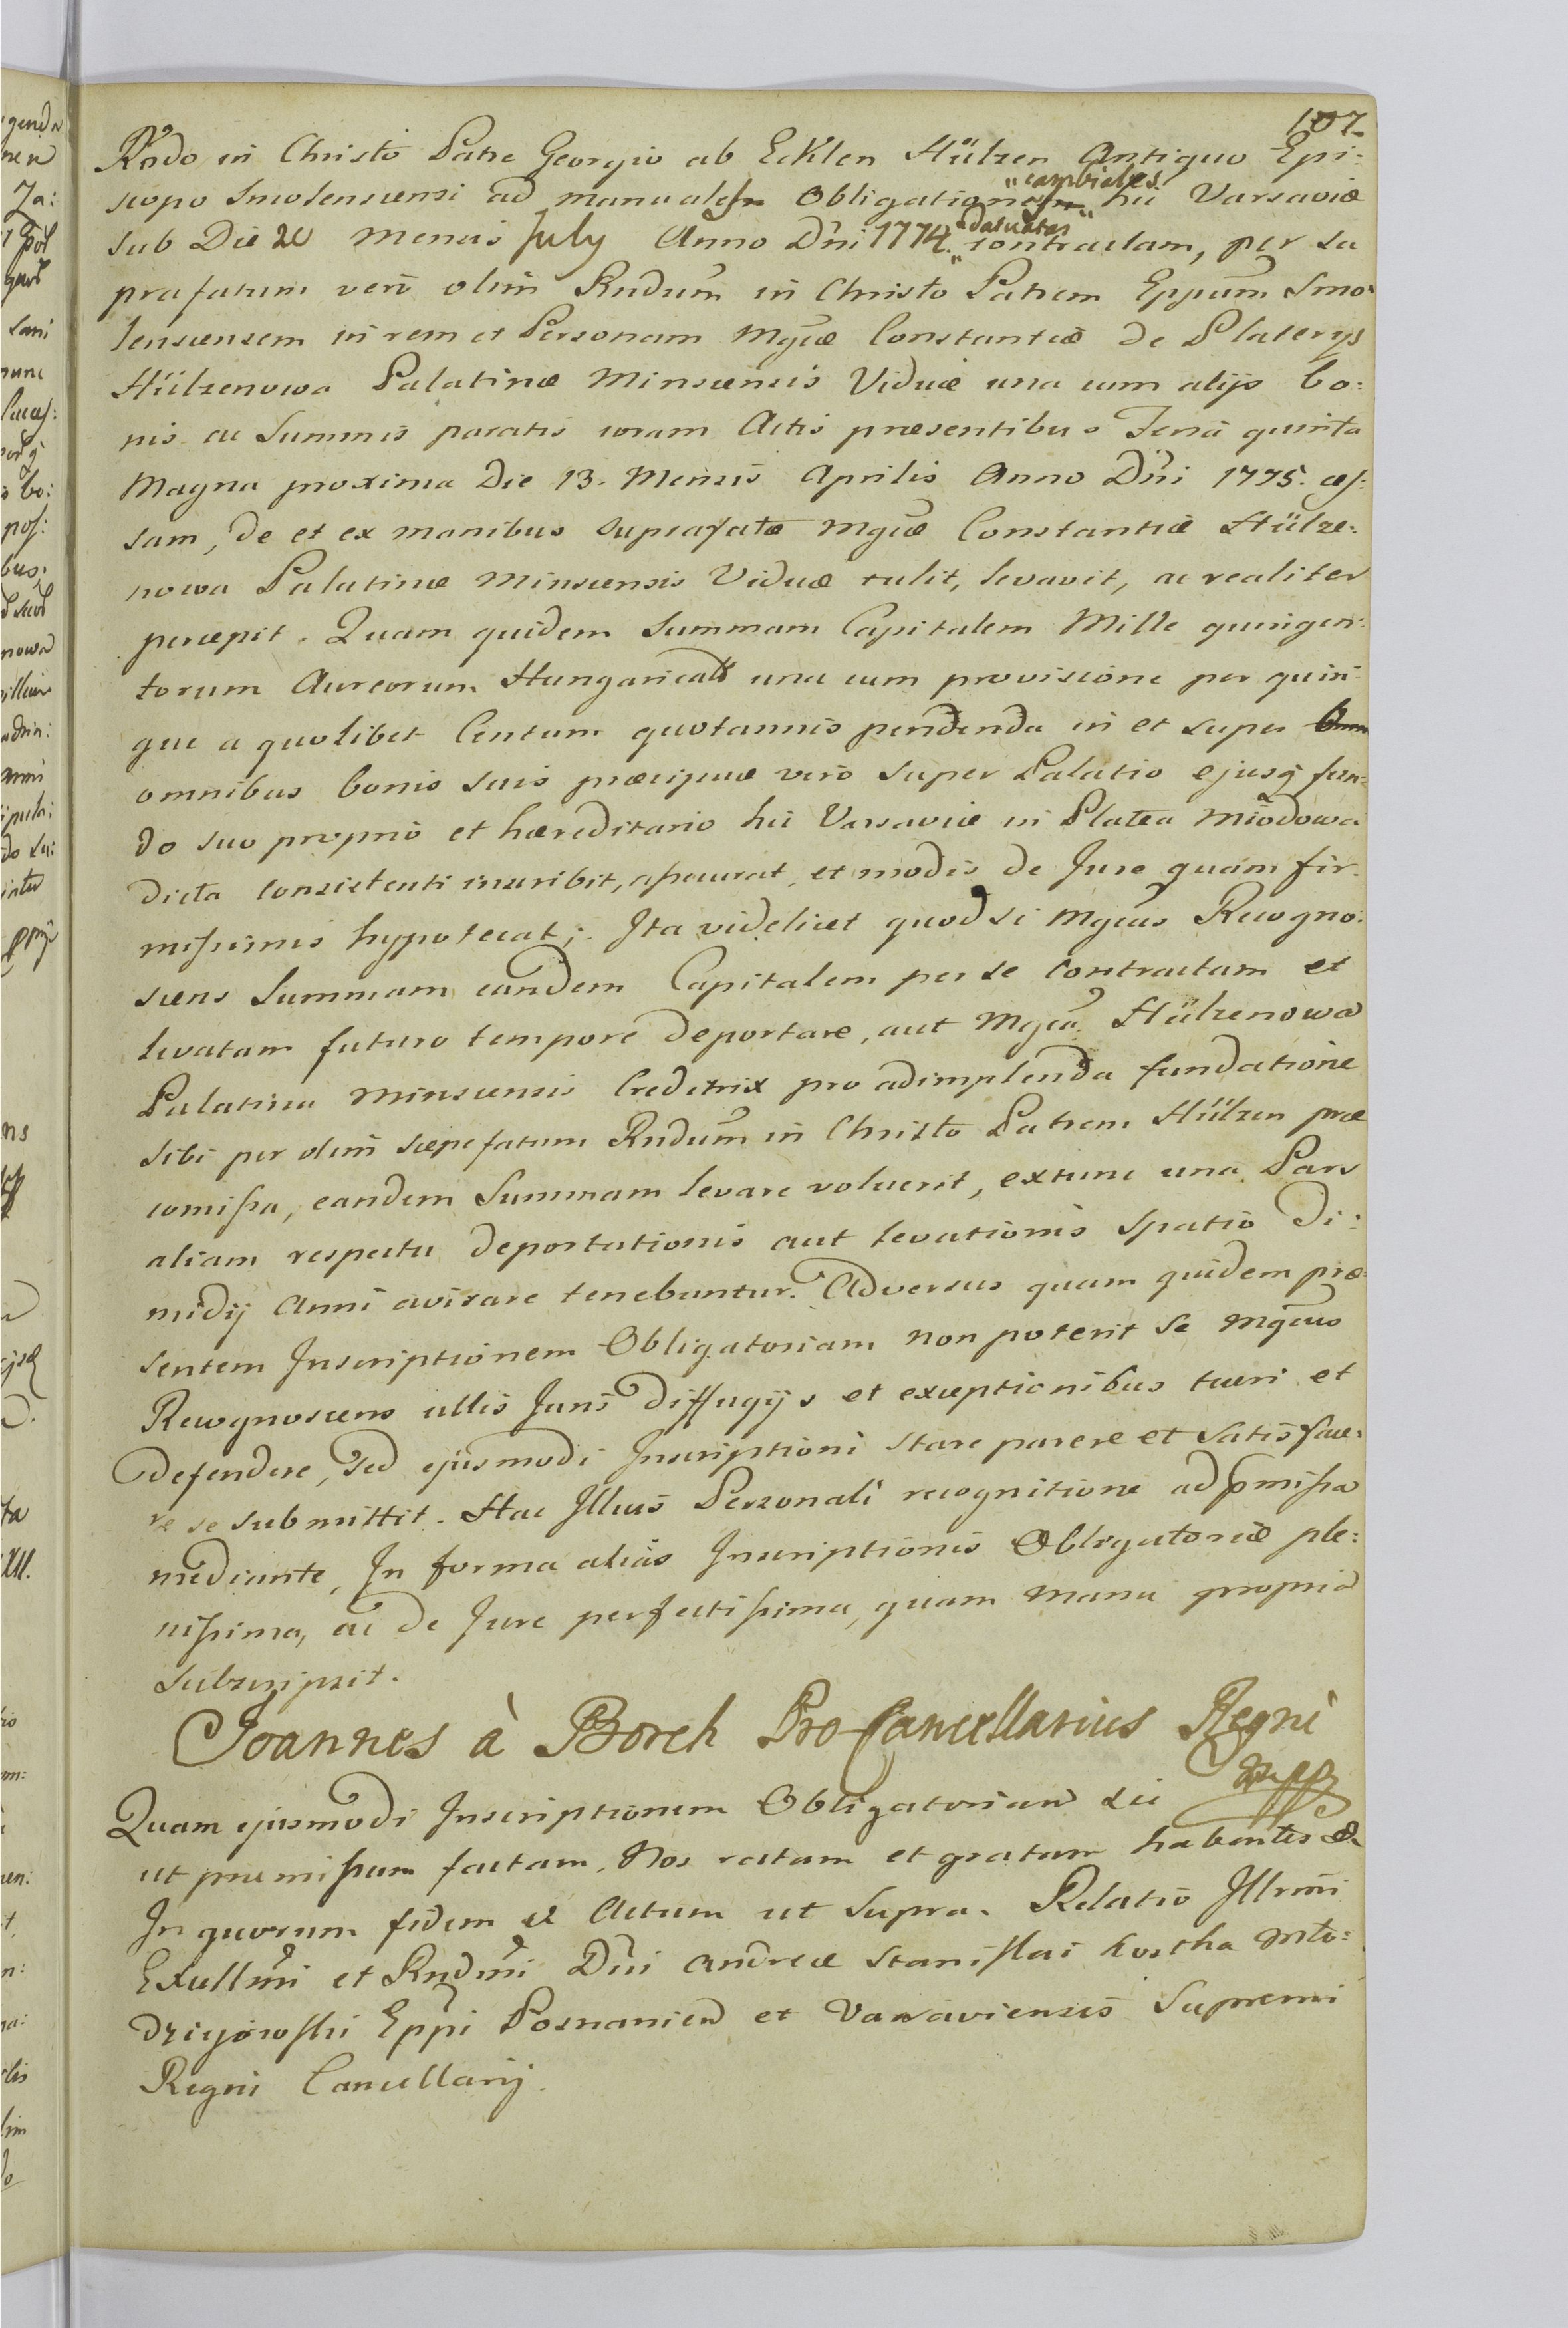 107.
Rndo in Christo Patre Georgio ab Ecklen Hülzen Antiquo Epi:
scopo Smolenscensi ad manuales Obligationes "cambiales hic Varsaviæ
sub Die 20 Mensis July Anno Dni 1774. "datuatas" contractam, per su
prafatum vero olim Rndum in Christo Patrem Eppum Smo:
lenscensem in rem et Personam Mgcæ Constantiæ de Platerys
Hülzenowa Palatinæ Minscensis Viduæ una cum alijs bo:
nis ac Summis paratis coram Actis præsentibus Feria quinta
Magna proxima Die 13. Mensis Aprilis Anno Dni 1775. ces:
sam, de et ex manibus suprafatæ Mgcæ Constantiæ Hülze:
nowa Palatinæ Minscensis Viduæ tulit, levavit, ac realiter
percepit. Quam quidem Summam Capitalem Mille quingen:
torum Aureorum Hungaricalt una cum provisione per quin:
que a quolibet Centum quotannis pendenda in et super
omnibus bonis suis præcipue vero super Palatio ejusq fun:
do suo proprio et hæreditario hic Varsaviæ in Platea Miodowa
dicta consistenti inscribit, assecurat, et modis de Jure quam fir:
missimis hypotecat; Ita videlicet quod si Mgcus Recogno:
scens Summam eandem Capitalem per se contractam et
levatam futuro tempore deportare, aut Mgca Hülzenowa
Palatina Minscensis Creditrix pro adimplenda fundatione
sibi per olim sæpefatum Rndum in Christo Patrem Hülzen præ
comissa, eandem Summam levare voluerit, extunc una Pars
aliam respectu deportationis aut levationis spatio di:
midij Anni avisare tenebuntur. Adversus quam quidem præ:
sentem Inscriptionem Obligatoriam non poterit se Mgcus
Recognoscens ullis Juris diffugijs et exceptionibus tueri et
defendere, sed ejusmodi Inscriptioni stare parere et satisface:
re se submittit. Hac Illius Personali recognitione ad pmissa
mediante, In forma alias Inscriptionis Obligatoriæ ple:
nissima, ac de Jure perfectissima, quam manu propria
subscripsit.
Joannes à Borch Pro Cancellarius Regni
mppr
Quam ejusmodi Inscriptionem Obligatoriam sic
ut præmissum factam. Nos ratam et gratam habentes &
In quorum fidem & Actum ut supra. Relatio Illrmi
Excellmi et Rndmi Dni Andreæ Stanislai Kostka Mło:
dzieiowski Eppi Posnanien et Varsaviensis Supremi
Regni Cancellarij.